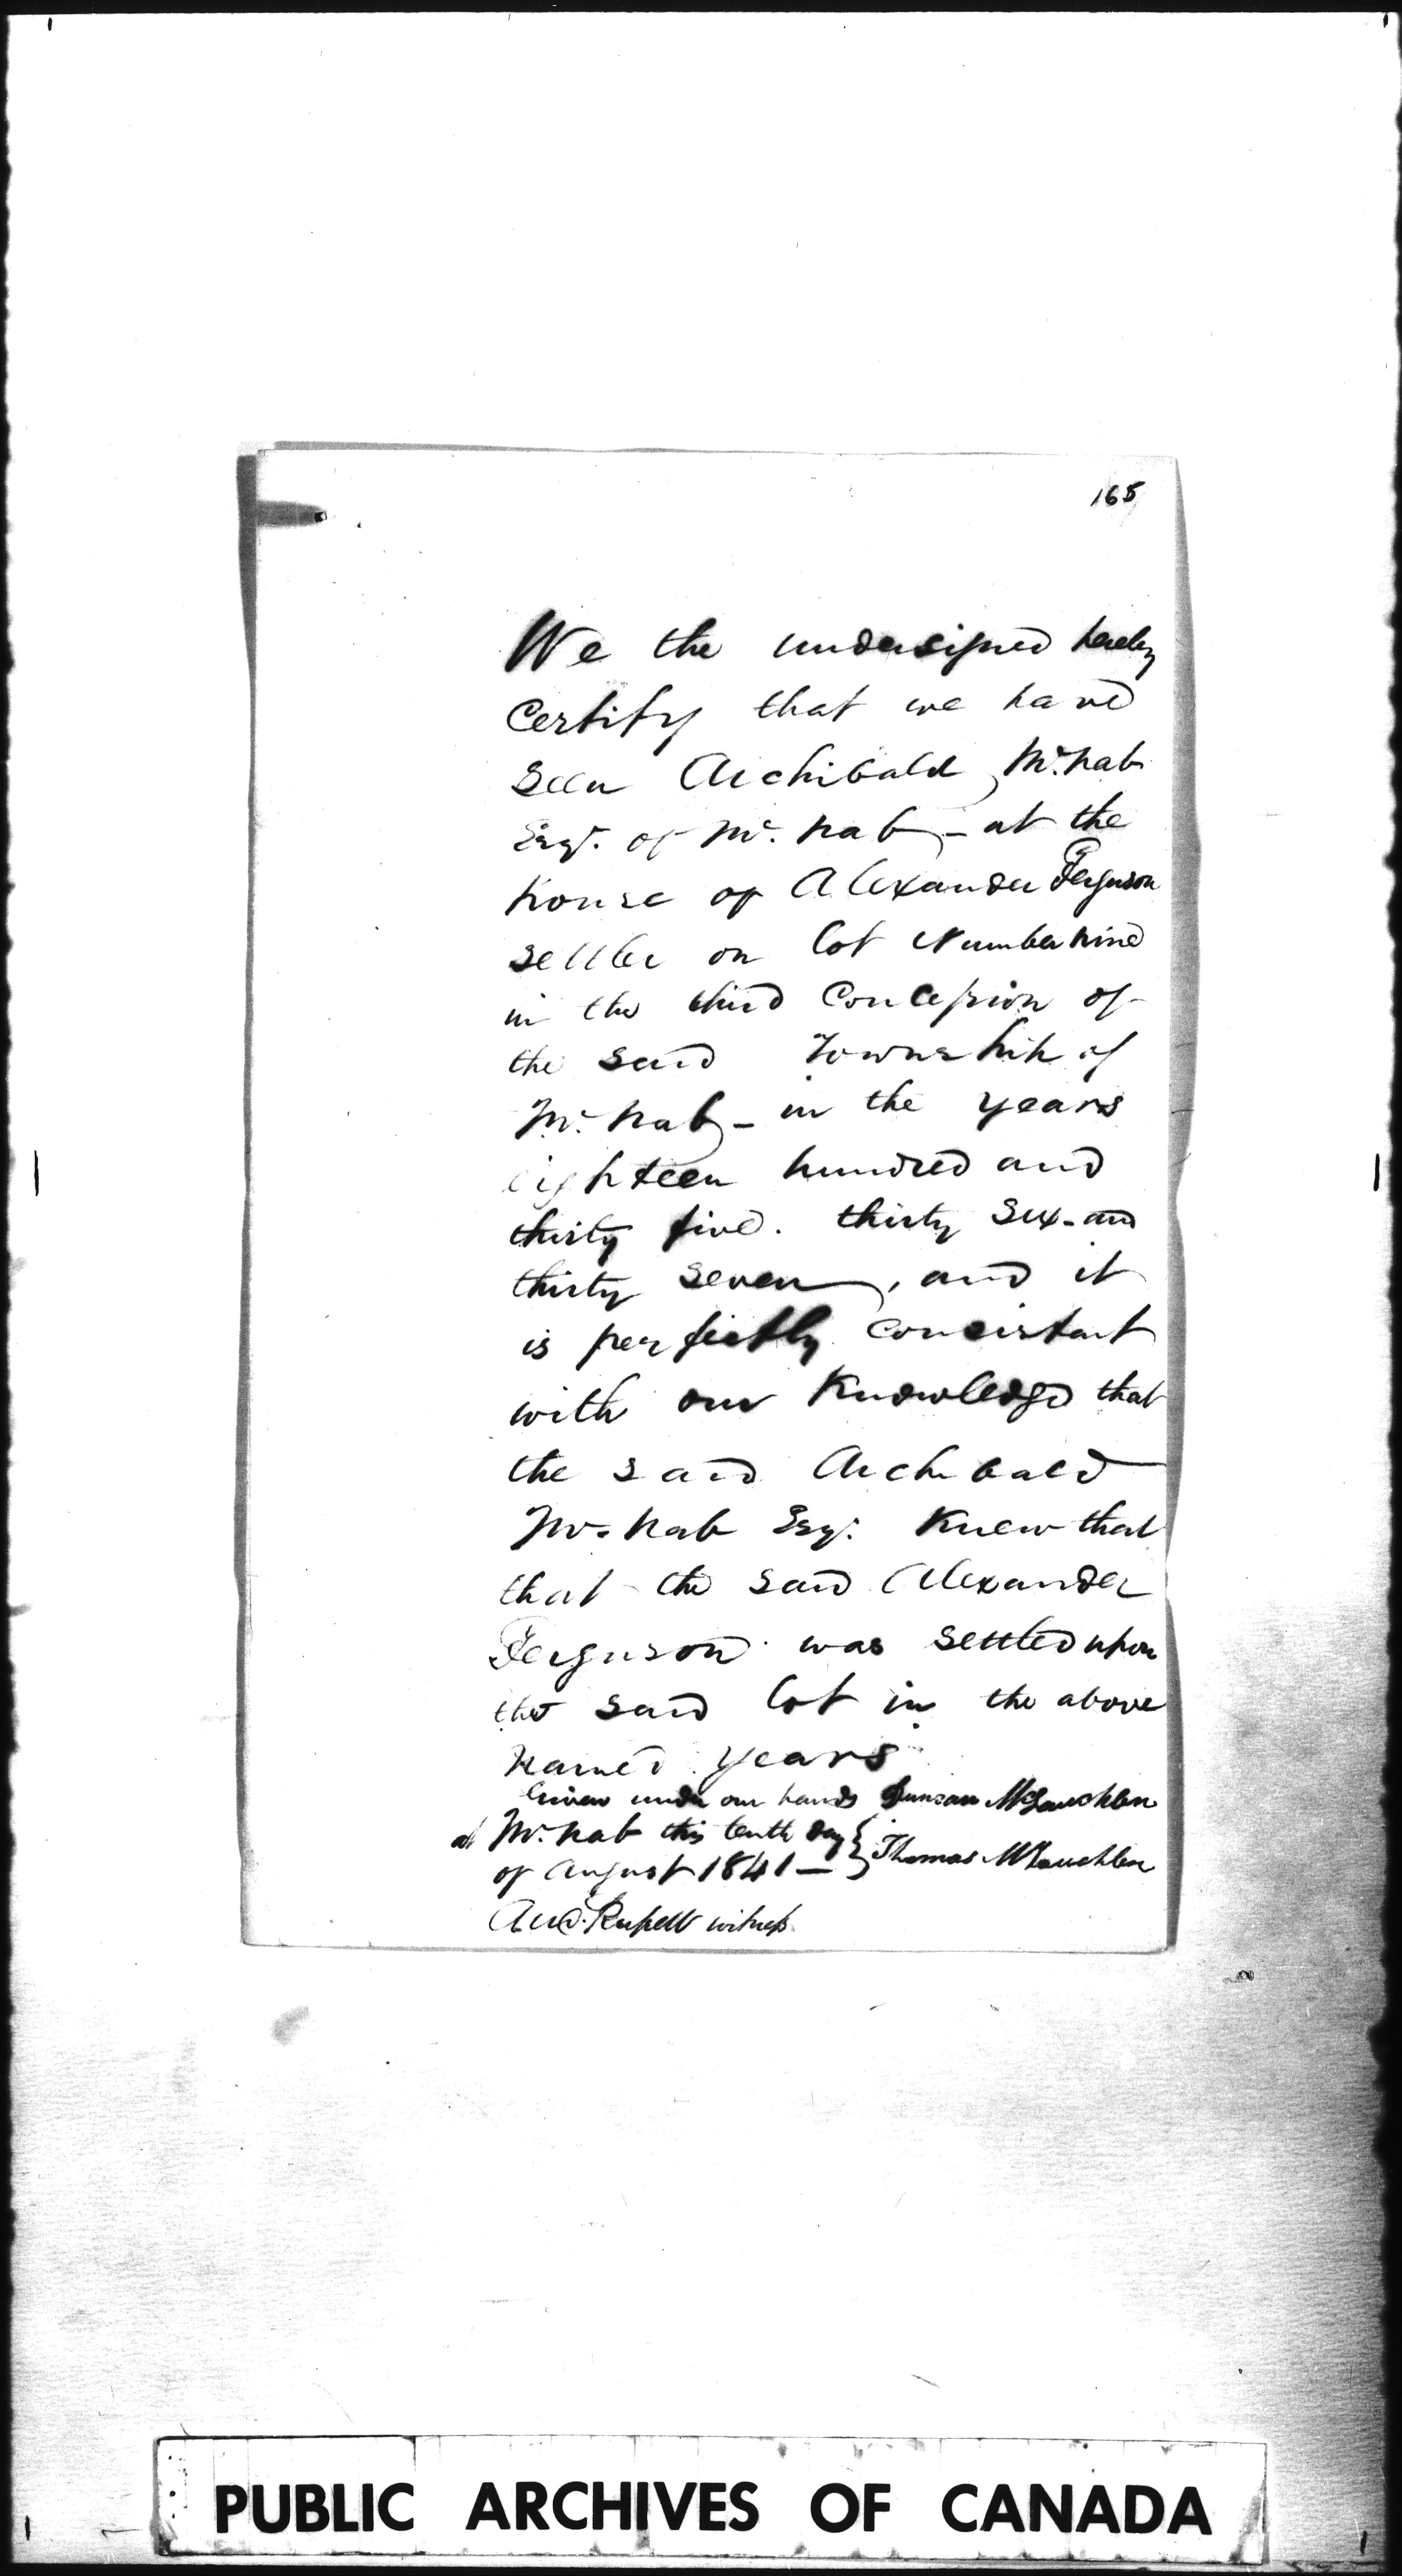 165
We the undersigned hereby
Certify that we have
Seen Archibald McNab
Esqr. of McNab - at the
house of Alexander Ferguson
settler on lot Number nine
in the third Concession of
the said Township of
McNab - in the years
eighteen hundred and
thirty five. thirty Six - and
thirty seven, and it
is perfectly consistant
with our Knowledge that
the said Archibald
McNab Esqr. Knew that
that the said Alexander
Ferguson was settled upon
the said lot in the above
named years
Given under our hands Duncan McLauchlen
at McNab this tenth day } Thomas McLauchlen
of August 1841 —
And. Russell witness
PUBLIC ARCHIVES OF CANADA